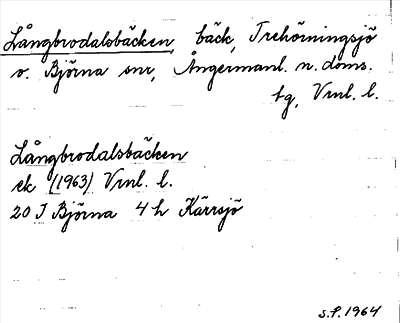 Långbrodalsbäcken, bäck, Trehörningsjö
o. Björna snr, Ångermanl. n. doms.
tg, Vrnl. l.
Långbrodalsbäcken
ek (1963) Vrnl. l.
20 I Björna 4 h Kärrsjö
S.P. 1964